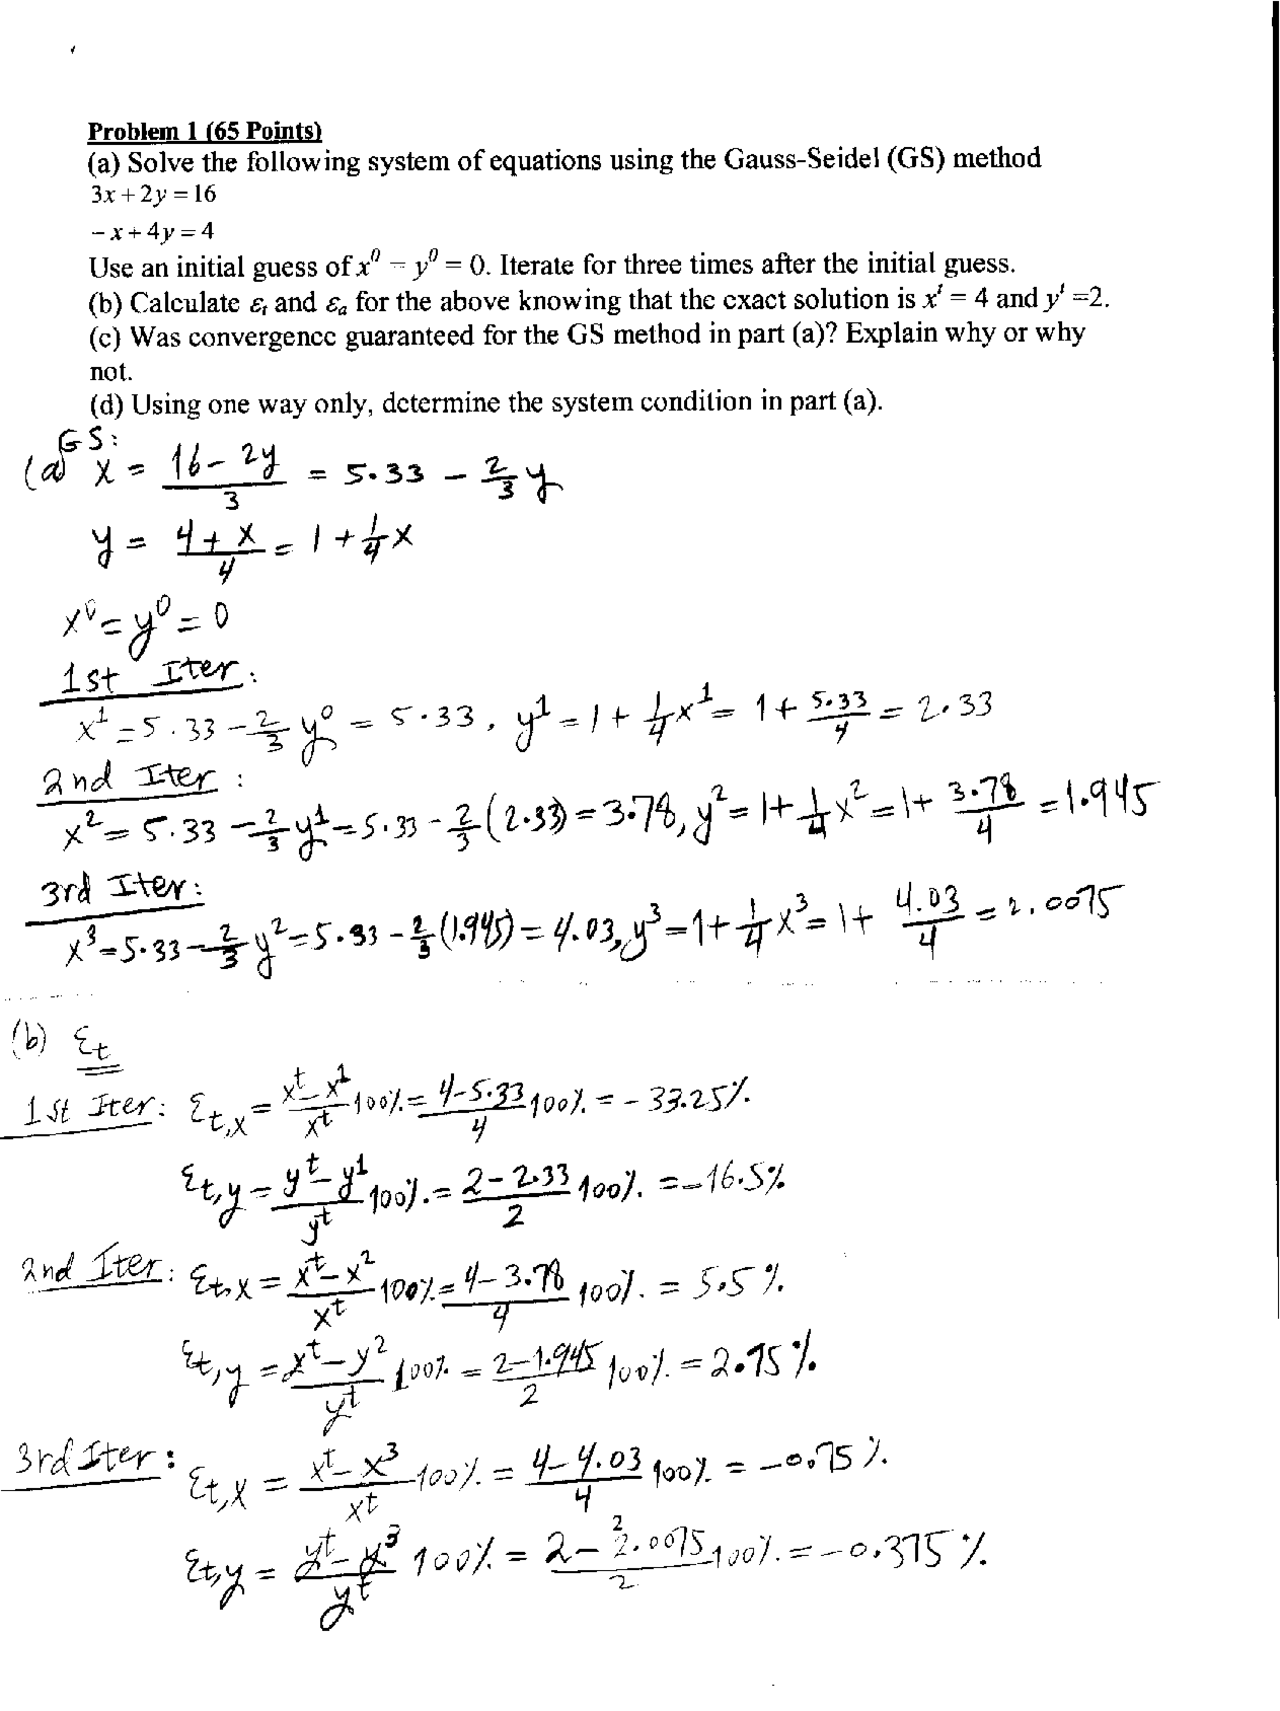 Problem 1 (65 Points)
(a) Solve the following system of equations using the Gauss-Seidel (GS) method
3x + 2y = 16
− x + 4y = 4
Use an initial guess of x⁰ = y⁰ = 0. Iterate for three times after the initial guess.
(b) Calculate εt and εa for the above knowing that the exact solution is xᵗ = 4 and yᵗ =2.
(c) Was convergence guaranteed for the GS method in part (a)? Explain why or why
not.
(d) Using one way only, determine the system condition in part (a).
GS:
(a) x = (16 - 2y)/3 = 5.33 - 2/3 y
y = (4 + x)/4 = 1 + 1/4 x
x⁰ = y⁰ = 0
1st Iter:
x¹ = 5.33 - 2/3 y⁰ = 5.33, y¹ = 1 + 1/4 x¹ = 1 + 5.33/4 = 2.33
2nd Iter:
x² = 5.33 - 2/3 y¹ = 5.33 - 2/3 (2.33) = 3.78, y² = 1 + 1/4 x² = 1 + 3.78/4 = 1.945
3rd Iter:
x³ = 5.33 - 2/3 y² = 5.33 - 2/3 (1.945) = 4.03, y³ = 1 + 1/4 x³ = 1 + 4.03/4 = 2.0075
(b) εt
1st Iter: εt,x = (xᵗ - x¹)/xᵗ 100% = (4 - 5.33)/4 100% = - 33.25%
εt,y = (yᵗ - y¹)/yᵗ 100% = (2 - 2.33)/2 100% = -16.5%
2nd Iter: εt,x = (xᵗ - x²)/xᵗ 100% = (4 - 3.78)/4 100% = 5.5%
εt,y = (yᵗ - y²)/yᵗ 100% = (2 - 1.945)/2 100% = 2.75%
3rd Iter: εt,x = (xᵗ - x³)/xᵗ 100% = (4 - 4.03)/4 100% = -0.75%
εt,y = (yᵗ - y³)/yᵗ 100% = (2 - 2.0075)/2 100% = -0.375%